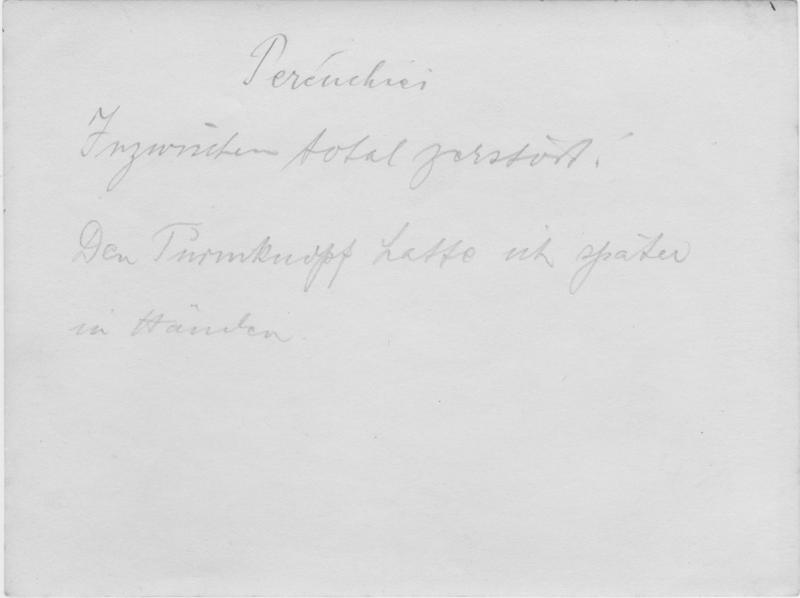 Inzwischen total zerstört!
Den Turmknopf hatte ich später
in Händen